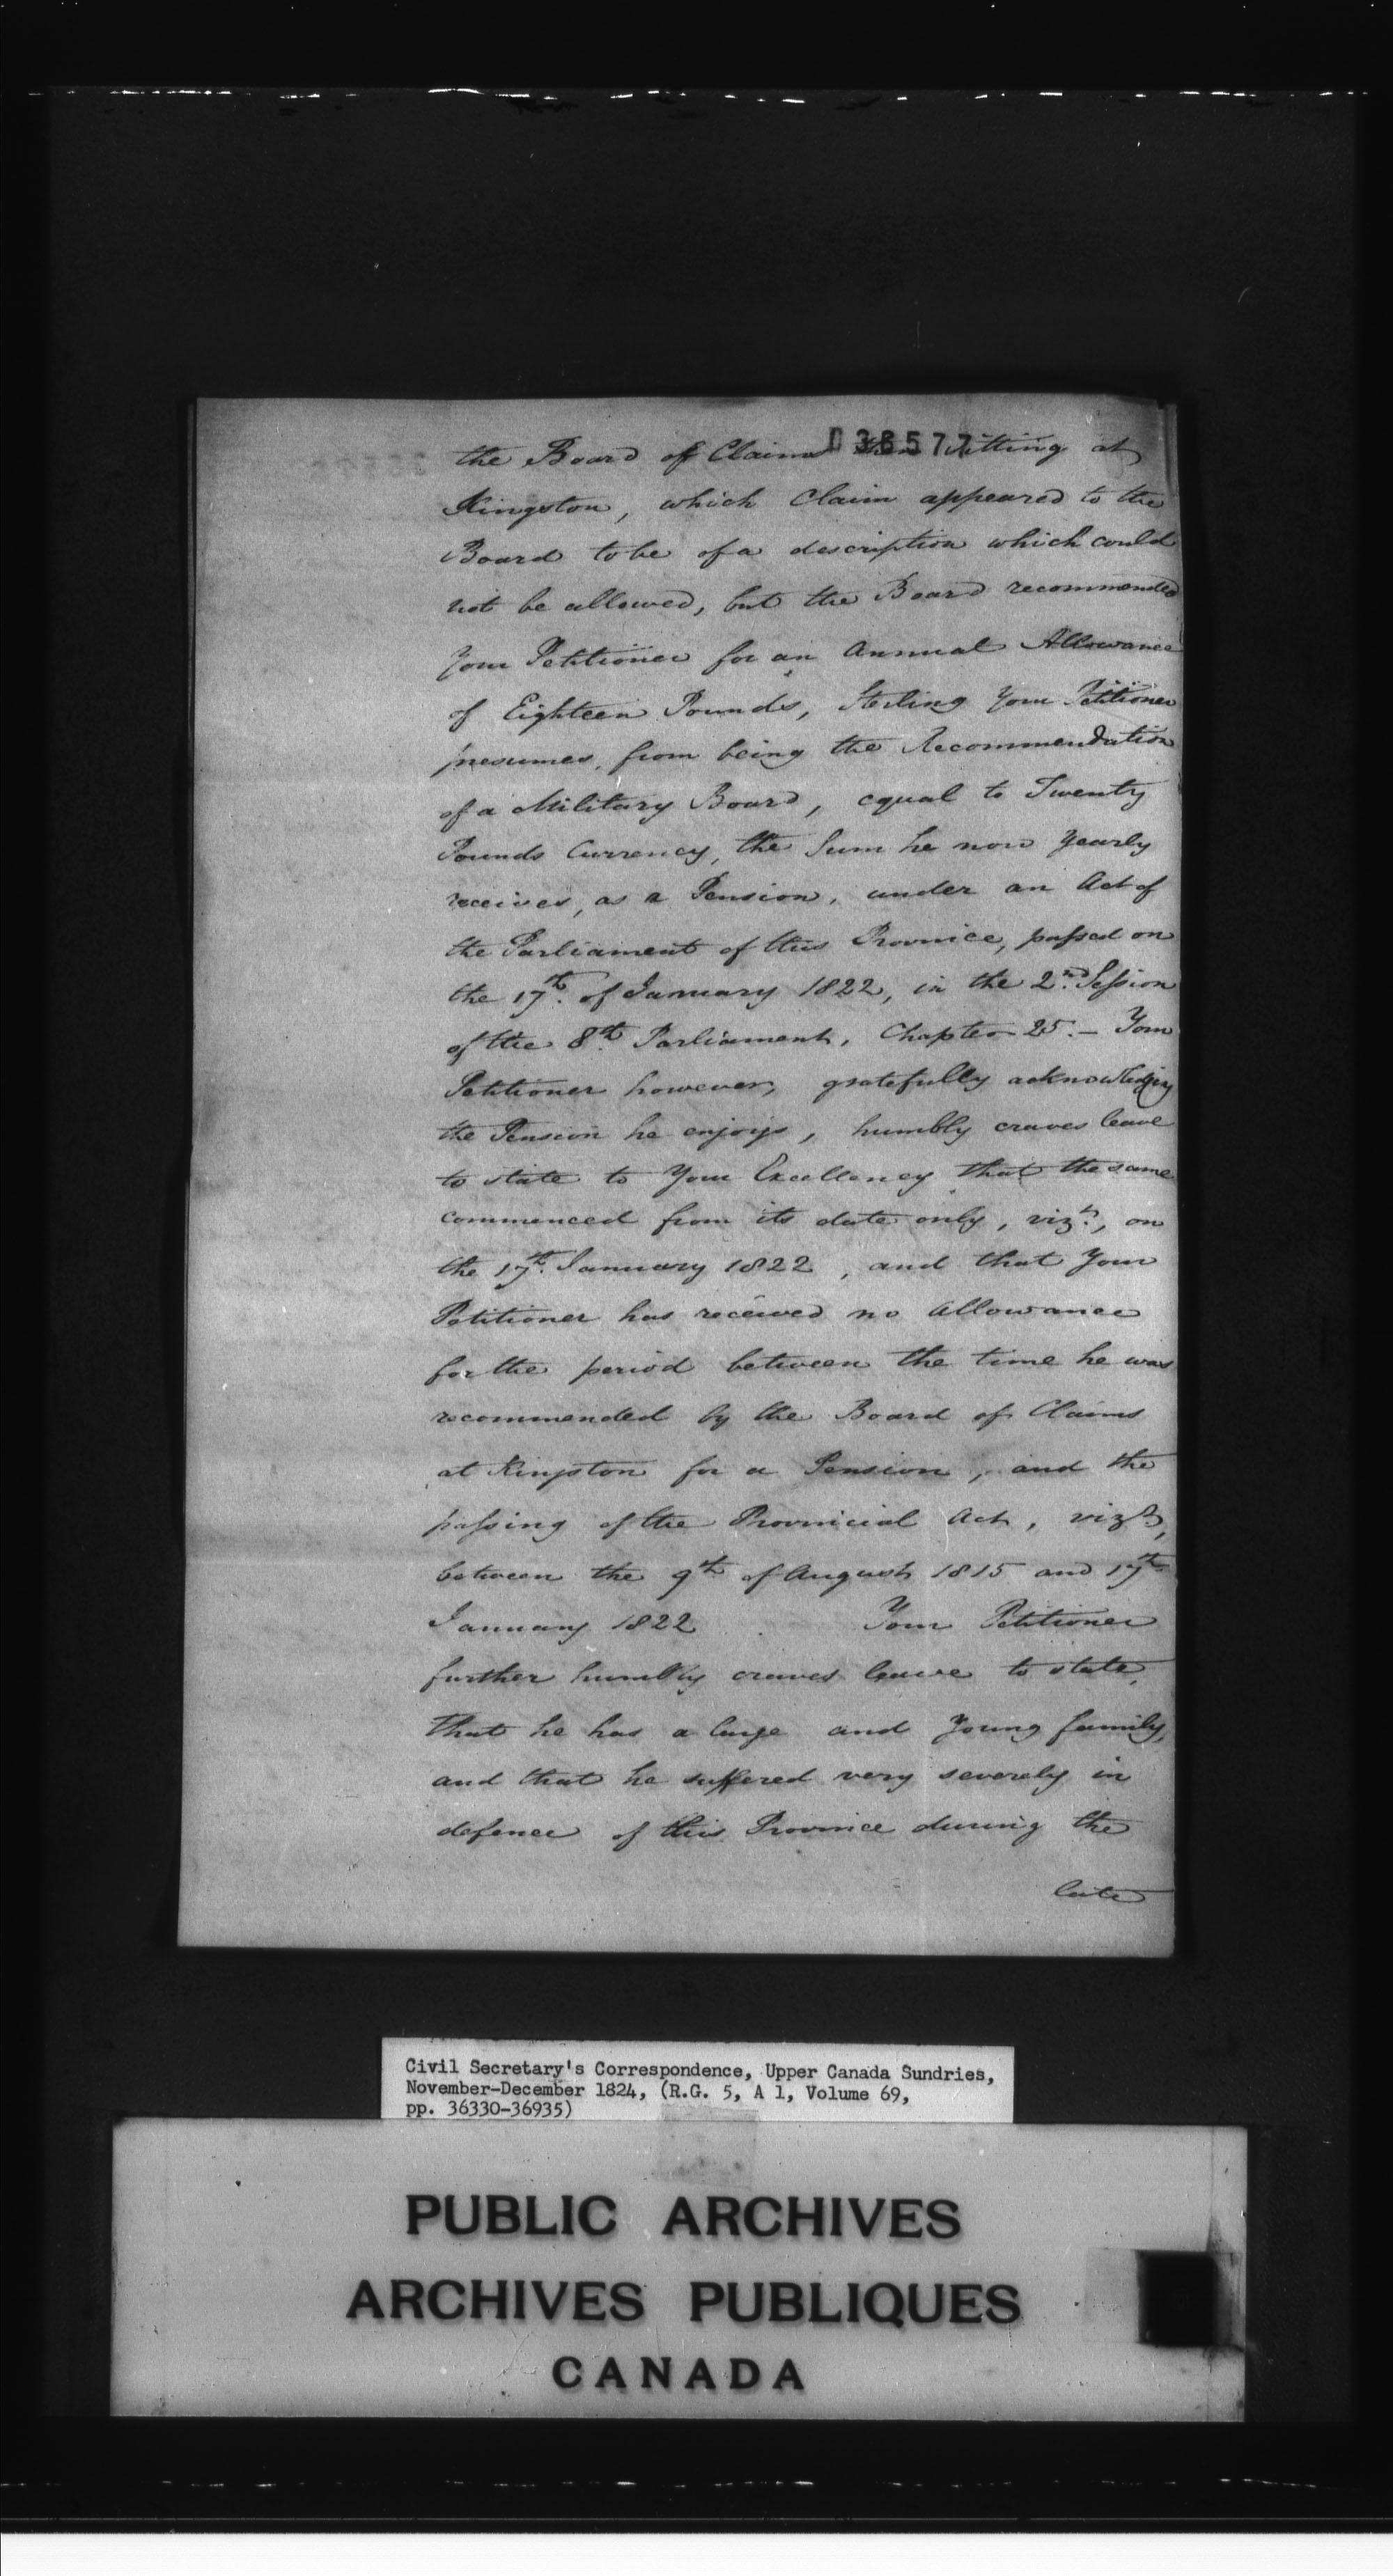 036577
the Board of Claims then sitting at
Kingston, which Claim appeared to the
Board to be of a description which could
not be allowed, but the Board recommended
Your Petitioner for an Annual Allowance
of Eighteen Pounds, Sterling Your Petitioner
presumes, from being the Recommendation
of a Military Board, equal to Twenty
Pounds Currency, the Sum he now yearly
receives, as a Pension, under an Act of
the Parliament of this Province, passed on
the 17th. of January 1822, in the 2nd. Session
of the 8th. Parliament, Chapter 25. – Your
Petitioner however, gratefully acknowledging
the Pension he enjoys, humbly craves leave
to state to Your Excellency that the same
commenced from its date only, vizt., on
the 17th. January 1822, and that Your
Petitioner has received no allowance
for the period between the time he was
recommended by the Board of Claims
at Kingston for a Pension, and the
passing of the Provincial Act, vizt,
between the 9th of August 1815 and 17th
January 1822 Your Petitioner
further humbly craves leave to state,
that he has a large and Young family,
and that he suffered very severely in
defence of this Province during the
late
Civil Secretary's Correspondence, Upper Canada Sundries,
November-December 1824, (R.G. 5, A 1, Volume 69,
pp. 36330-36935)
PUBLIC ARCHIVES
ARCHIVES PUBLIQUES
CANADA